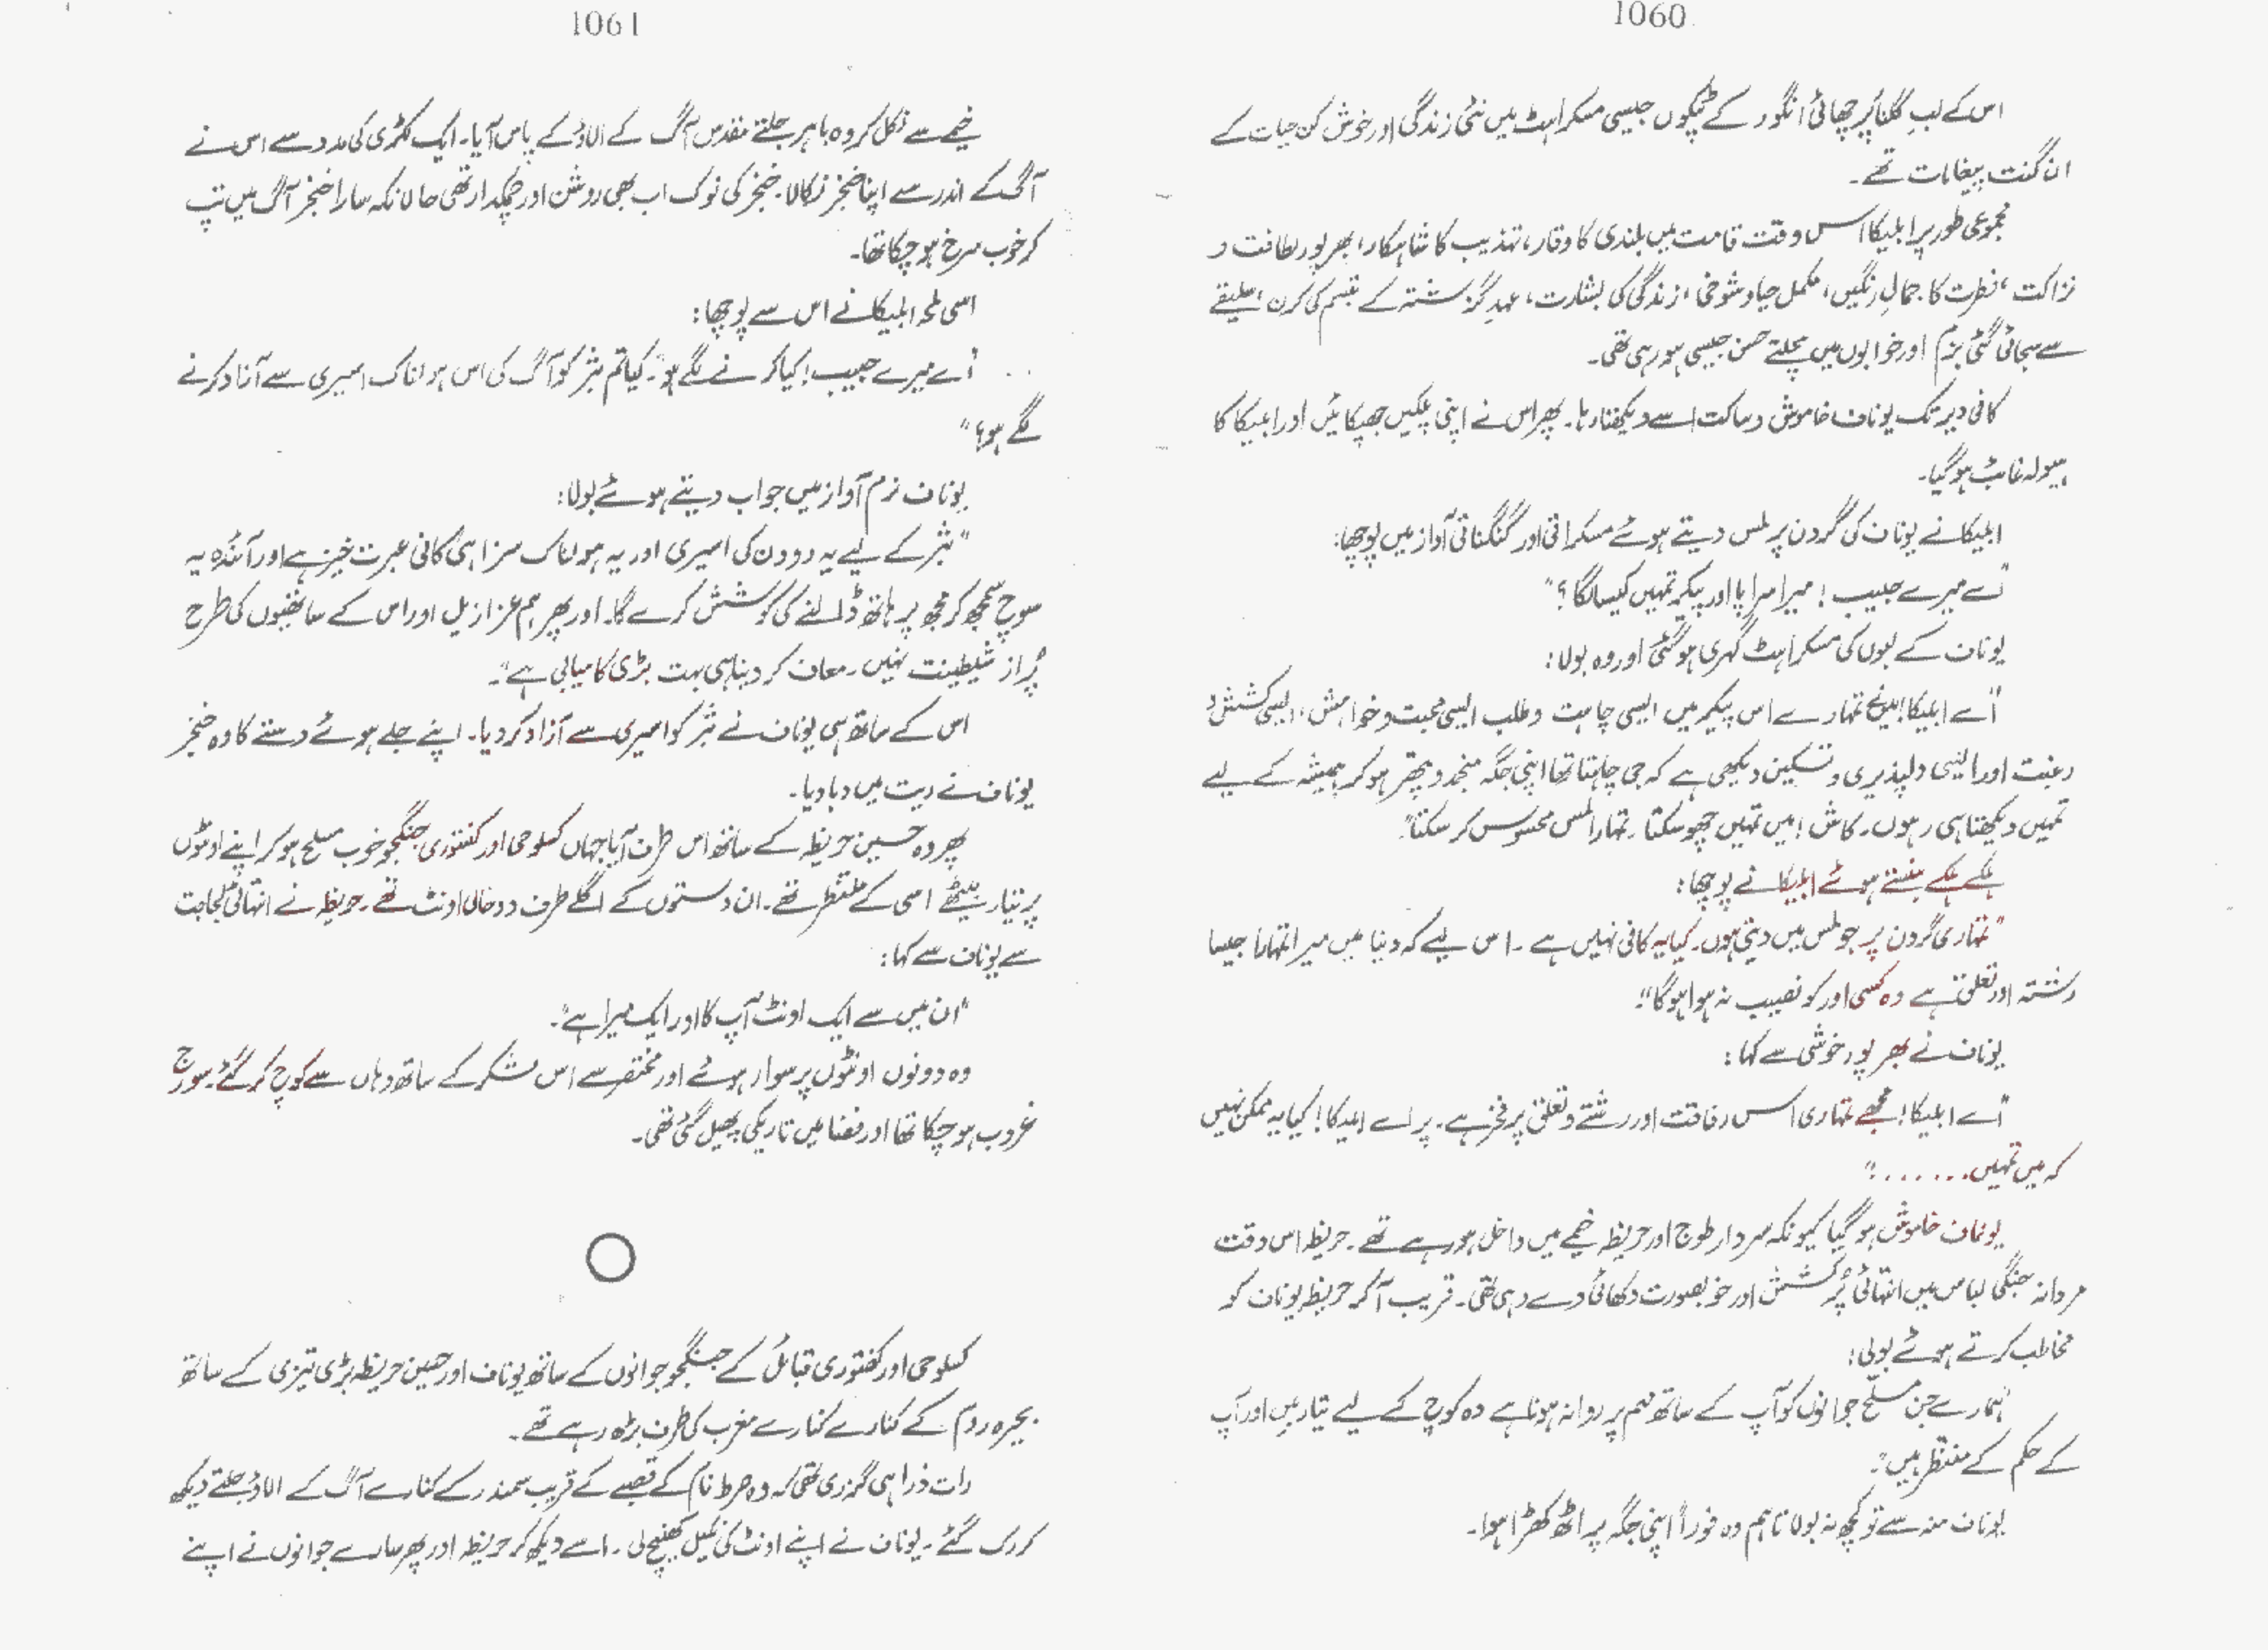 1060
اس کے لبِ گلنار پر چھائی انگور کے ٹپکوں جیسی مسکراہٹ میں نئی زندگی اور خوش کن حیات کے
ان گنت پیغامات تھے۔
مجموعی طور پر ابلیکا اس وقت قامت میں بلندی کا وقار، تہذیب کا شاہکار، بھرپور لطافت و
نزاکت، فطرت کا جمالِ رنگیں، مکمل حیا و شوخی، زندگی کی بشارت، عہدِ گزشتہ کے تبسم کی کرن، سلیقے
سے سجائی گئی بزم اور خوابوں میں مچلتے حسن جیسی ہو رہی تھی۔
کافی دیر تک یوناف خاموش و ساکت اسے دیکھتا رہا۔ پھر اس نے اپنی پلکیں جھپکائیں اور ابلیکا کا
ہیولہ غائب ہو گیا۔
ابلیکا نے یوناف کی گردن پر لمس دیتے ہوئے مسکراتی اور گنگناتی آواز میں پوچھا:
"اے میرے حبیب! میرا سراپا اور پیکر تمہیں کیسا لگا؟"
یوناف کے لبوں کی مسکراہٹ گہری ہو گئی اور وہ بولا:
"اے ابلیکا! میں نے تمہارے اس پیکر میں ایسی چاہت و طلب ایسی محبت و خواہش، ایسی کشش و
رغبت اور ایسی دلپذیری و تسکین دیکھی ہے کہ جی چاہتا تھا اپنی جگہ منجمد و پتھر ہو کر ہمیشہ کے لیے
تمہیں دیکھتا ہی رہوں۔ کاش! میں تمہیں چھو سکتا۔ تمہارا لمس محسوس کر سکتا"۔
ہلکے ہلکے ہنستے ہوئے ابلیکا نے پوچھا:
"تمہاری گردن پر جو لمس میں دیتی ہوں۔ کیا یہ کافی نہیں ہے۔ اس لیے کہ دنیا میں میرا تمہارا جیسا
رشتہ اور تعلق ہے وہ کسی اور کو نصیب نہ ہوا ہو گا"۔
یوناف نے بھرپور خوشی سے کہا:
"اے ابلیکا! مجھے تمہاری اس رفاقت اور رشتے و تعلق پر فخر ہے۔ پر اے ابلیکا! کیا یہ ممکن نہیں
کہ میں تمہیں......."
یوناف خاموش ہو گیا کیونکہ سردار طوج اور حریظہ خیمے میں داخل ہو رہے تھے۔ حریظہ اس وقت
مردانہ جنگی لباس میں انتہائی پُرکشش اور خوبصورت دکھائی دے رہی تھی۔ قریب آ کر حریظہ یوناف کو
مخاطب کرتے ہوئے بولی:
"ہمارے جن مسلح جوانوں کو آپ کے ساتھ مہم پر روانہ ہونا ہے وہ کوچ کے لیے تیار ہیں اور آپ
کے حکم کے منتظر ہیں"۔
یوناف منہ سے تو کچھ نہ بولا تاہم وہ فوراً اپنی جگہ پر اٹھ کھڑا ہوا۔
1061
خیمے سے نکل کر وہ باہر جلتے مقدس آگ کے الاؤ کے پاس آیا۔ ایک لکڑی کی مدد سے اس نے
آگ کے اندر سے اپنا خنجر نکالا۔ خنجر کی نوک اب بھی روشن اور چمکدار تھی حالانکہ سارا خنجر آگ میں تپ
کر خوب سرخ ہو چکا تھا۔
اسی لمحہ ابلیکا نے اس سے پوچھا:
"اے میرے حبیب! کیا کرنے لگے ہو۔ کیا تم بثر کو آگ کی اس ہولناک اسیری سے آزاد کرنے
لگے ہو؟"
یوناف نرم آواز میں جواب دیتے ہوئے بولا:
"بثر کے لیے یہ دو دن کی اسیری اور یہ ہولناک سزا ہی کافی عبرت خیز ہے اور آئندہ یہ
سوچ سمجھ کر مجھ پر ہاتھ ڈالنے کی کوشش کرے گا۔ اور پھر ہم عزازیل اور اس کے ساتھیوں کی طرح
پُر از شیطینت نہیں۔ معاف کر دینا ہی بہت بڑی کامیابی ہے"۔
اس کے ساتھ ہی یوناف نے بثر کو اسیری سے آزاد کر دیا۔ اپنے جلے ہوئے دستے کا وہ خنجر
یوناف نے ریت میں دبا دیا۔
پھر وہ حسین حریظہ کے ساتھ اس طرف آیا جہاں کسلوحی اور کفتوری جنگجو خوب مسلح ہو کر اپنے اونٹوں
پر تیار بیٹھے اسی کے منتظر تھے۔ ان دستوں کے اگلے طرف دو خالی اونٹ تھے۔ حریظہ نے انتہائی لجاجت
سے یوناف سے کہا:
"ان میں سے ایک اونٹ آپ کا اور ایک میرا ہے"۔
وہ دونوں اونٹوں پر سوار ہوئے اور مختصر سے اس لشکر کے ساتھ وہاں سے کوچ کر گئے۔ سورج
غروب ہو چکا تھا اور فضا میں تاریکی پھیل گئی تھی۔
کسلوحی اور کفتوری قبائل کے جنگجو جوانوں کے ساتھ یوناف اور حسین حریظہ بڑی تیزی کے ساتھ
بحیرہ روم کے کنارے کنارے مغرب کی طرف بڑھ رہے تھے۔
رات ذرا ہی گزری تھی کہ وہ صرط نام کے قصبے کے قریب سمندر کے کنارے آگ کے الاؤ جلتے دیکھ
کر رک گئے۔ یوناف نے اپنے اونٹ کی نکیل کھینچ لی۔ اسے دیکھ کر حریظہ اور پھر سارے جوانوں نے اپنے